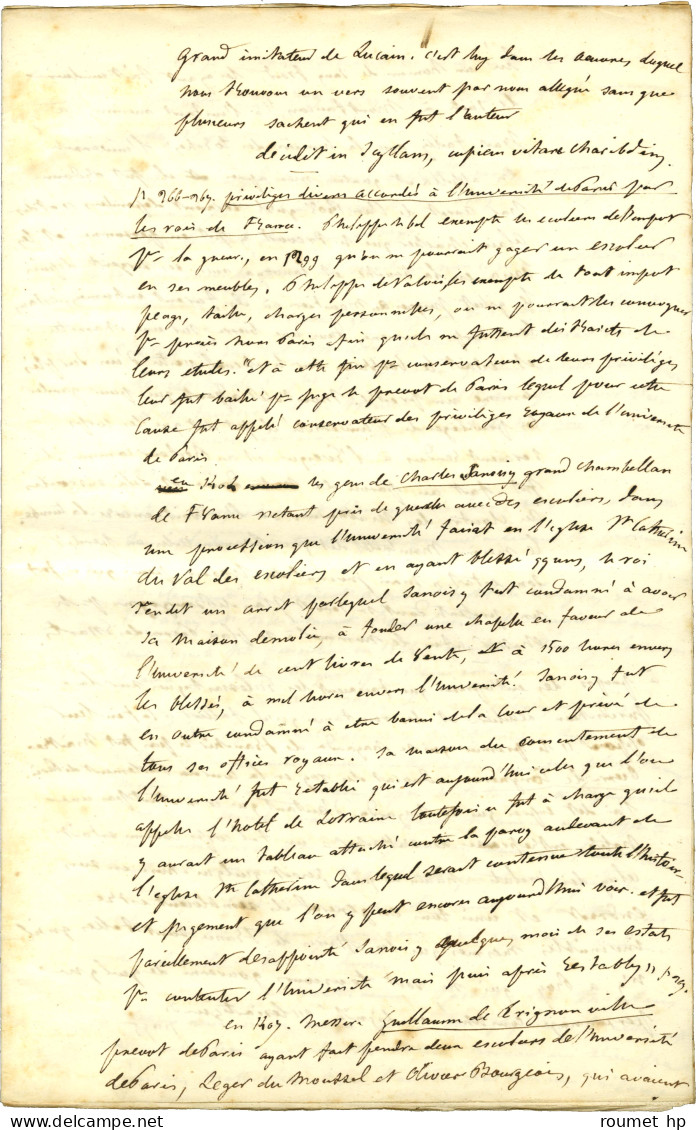 Grand imitateur de Lucain. c'est luy dans les oeuvres duquel
nous trouvons un vers souvent par nous allégué sans que
plusieurs sachent qui en fut l'auteur
decidit in scyllam, cupiens vitare charibdim
p 266-267. privilèges divers accordés à l'université de Paris par
les rois de France. Philippe le bel exempte les ecoliers de l'impot
pr la guerre, en 1299 qu'on ne pourrait gager un escolier
en ses meubles. Philippe de Valois les exempte de tout impot
peage, taille, charges personnelles, on ne pourrait les convoquer
pr procès hors Paris afin qu'ils ne fussent distraicts de
leurs etudes. "et à cette fin pr conservateur de leurs privilèges
leur fut baillé pr juge le prevot de Paris lequel pour cette
cause fut appelé conservateur des privilèges royaux de l'université
de Paris
en 1404 les gens de Charles Savoisy grand chambellan
de France s'etant pris de querelle avec des escoliers, dans
une procession que l'université faisait en l'eglise Ste Catherine
du Val des escoliers et en ayant blessé qques uns, le roi
rendit un arret par lequel Savoisy fut condamné à avoir
sa maison demolie, à fonder une chapelle en faveur de
l'université de cent livres de rente, et à 1500 livres envers
les blessés, à mil livres envers l'université. Savoisy fut
en outre condamné à etre banni de la cour et privé de
tous ses offices royaux. Sa maison du consentement de
l'université fut retablie qui est aujourd'hui celle que l'on
appelle l'hotel de Lorraine toutefois ce fut à charge qu'il
y aurait un tableau attaché contre la paroy au devant de
l'eglise Ste Catherine dans lequel serait contenue toute l'histoire
et jugement que l'on y peut encores aujourd'hui voir. et fut
pareillement desappointé Savoisy quelques mois de ses estats
pr contenter l'Université mais puis après restably"
en 1407. Messire Guillaume de Tignonville
prevot de Paris ayant fait pendre deux escoliers de l'Université
de Paris, Leger du Moussel et Olivier Bourgeois, qui avaient
roumet hp